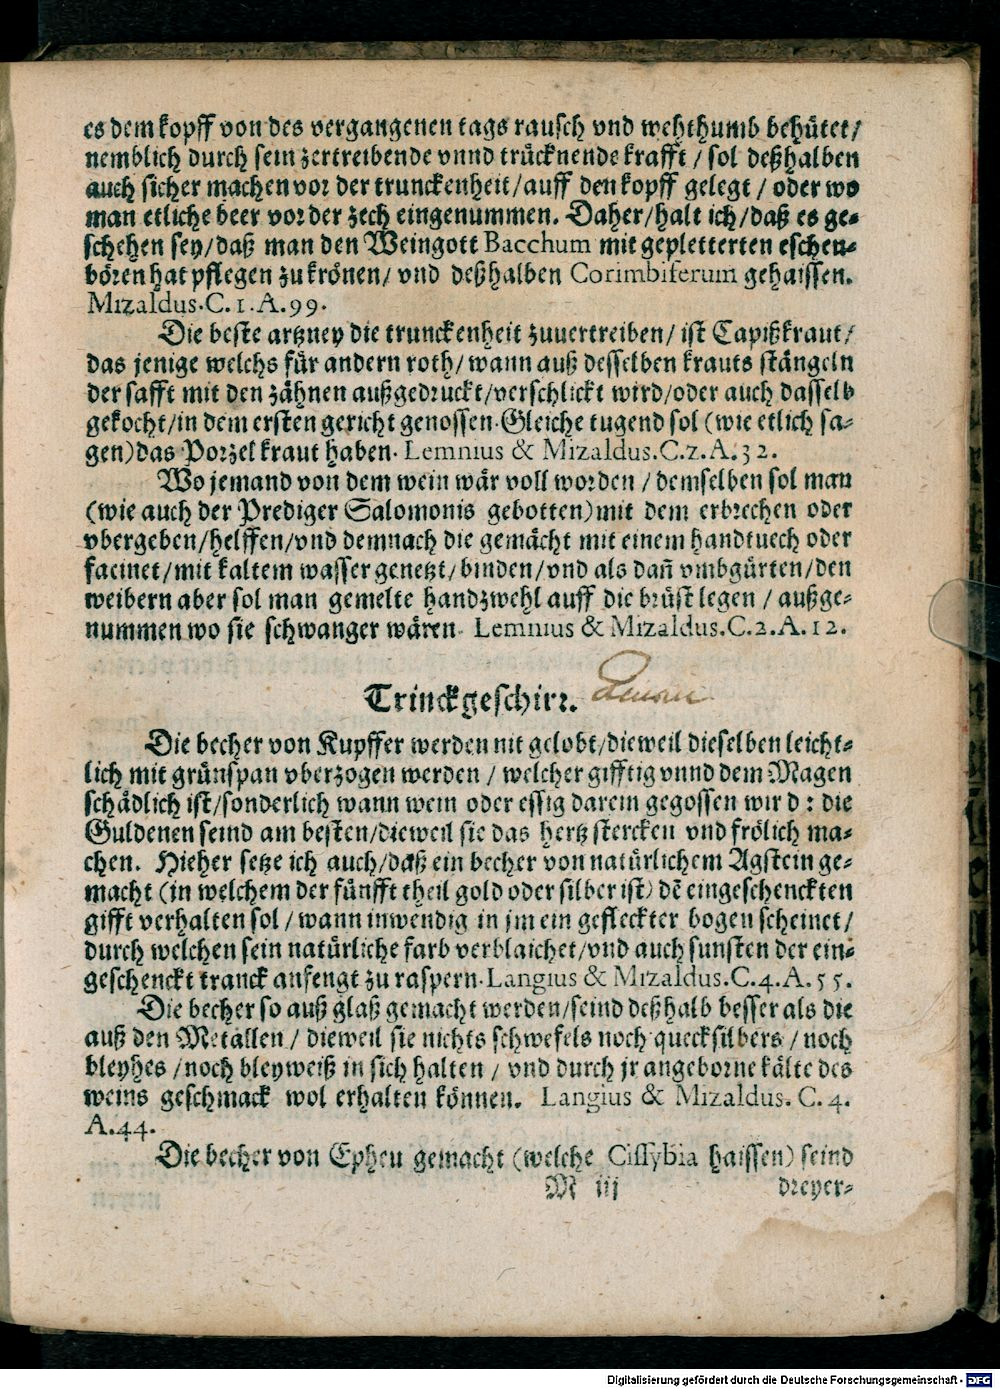 es dem kopff von des vergangenen tags rausch vnd wehthumb behütet/
nemblich durch sein zertreibende vnnd trücknende krafft / sol deßhalben
auch sicher machen vor der trunckenheit/auff den kopff gelegt / oder wo
man etliche beer vor der zech eingenummen. Daher/halt ich/daß es ge-
schehen sey/daß man den Weingott Bacchum mit gepletterten eschen-
bören hat pflegen zu krönen/ vnd deßhalben Corimbiferum gehaissen.
Mizaldus.C.1.A.99.
Die beste artzney die trunckenheit zuuertreiben/ ist Capißkraut/
das jenige welchs für andern roth/wann auß desselben krauts stängeln
der safft mit den zähnen außgedruckt/verschlickt wird/oder auch dasselb
gekocht/in dem ersten gericht genossen. Gleiche tugend sol (wie etlich sa-
gen)das Porzel kraut haben. Lemnius & Mizaldus.C.2.A.32.
Wo jemand von dem wein wär voll worden / demselben sol man
(wie auch der Prediger Salomonis gebotten)mit dem erbrechen oder
vbergeben/helffen/vnd demnach die gemächt mit einem handtuech oder
facinet/mit kaltem wasser genetzt/binden/vnd als dañ vmbgürten/den
weibern aber sol man gemelte handzwehl auff die brüst legen / außge-
nummen wo sie schwanger wären. Lemnius & Mizaldus.C.2.A.12.
Trinckgeschirr.
Die becher von Kupffer werden nit gelobt/dieweil dieselben leicht-
lich mit grünspan vberzogen werden / welcher gifftig vnnd dem Magen
schädlich ist/sonderlich wann wein oder essig darein gegossen wird: die
Guldenen seind am besten/dieweil sie das hertz stercken vnd frölich ma-
chen. Hieher setze ich auch/daß ein becher von natürlichem Agstein ge-
macht (in welchem der fünfft theil gold oder silber ist) dẽ eingeschenckten
gifft verhalten sol / wann inwendig in jm ein gefleckter bogen scheinet/
durch welchen sein natürliche farb verblaichet/vnd auch sunsten der ein-
geschenckt tranck anfengt zu raspern. Langius & Mizaldus.C.4.A.55.
Die becher so auß glaß gemacht werden/seind deßhalb besser als die
auß den Metallen / dieweil sie nichts schwefels noch quecksilbers / noch
bleyhes / noch bleyweiß in sich halten / vnd durch jr angeborne kälte des
weins geschmack wol erhalten können. Langius & Mizaldus. C. 4.
A.44.
Die becher von Epheu gemacht (welche Cissybia haissen) seind
M iij dreyer-
Digitalisierung gefördert durch die Deutsche Forschungsgemeinschaft - DFG